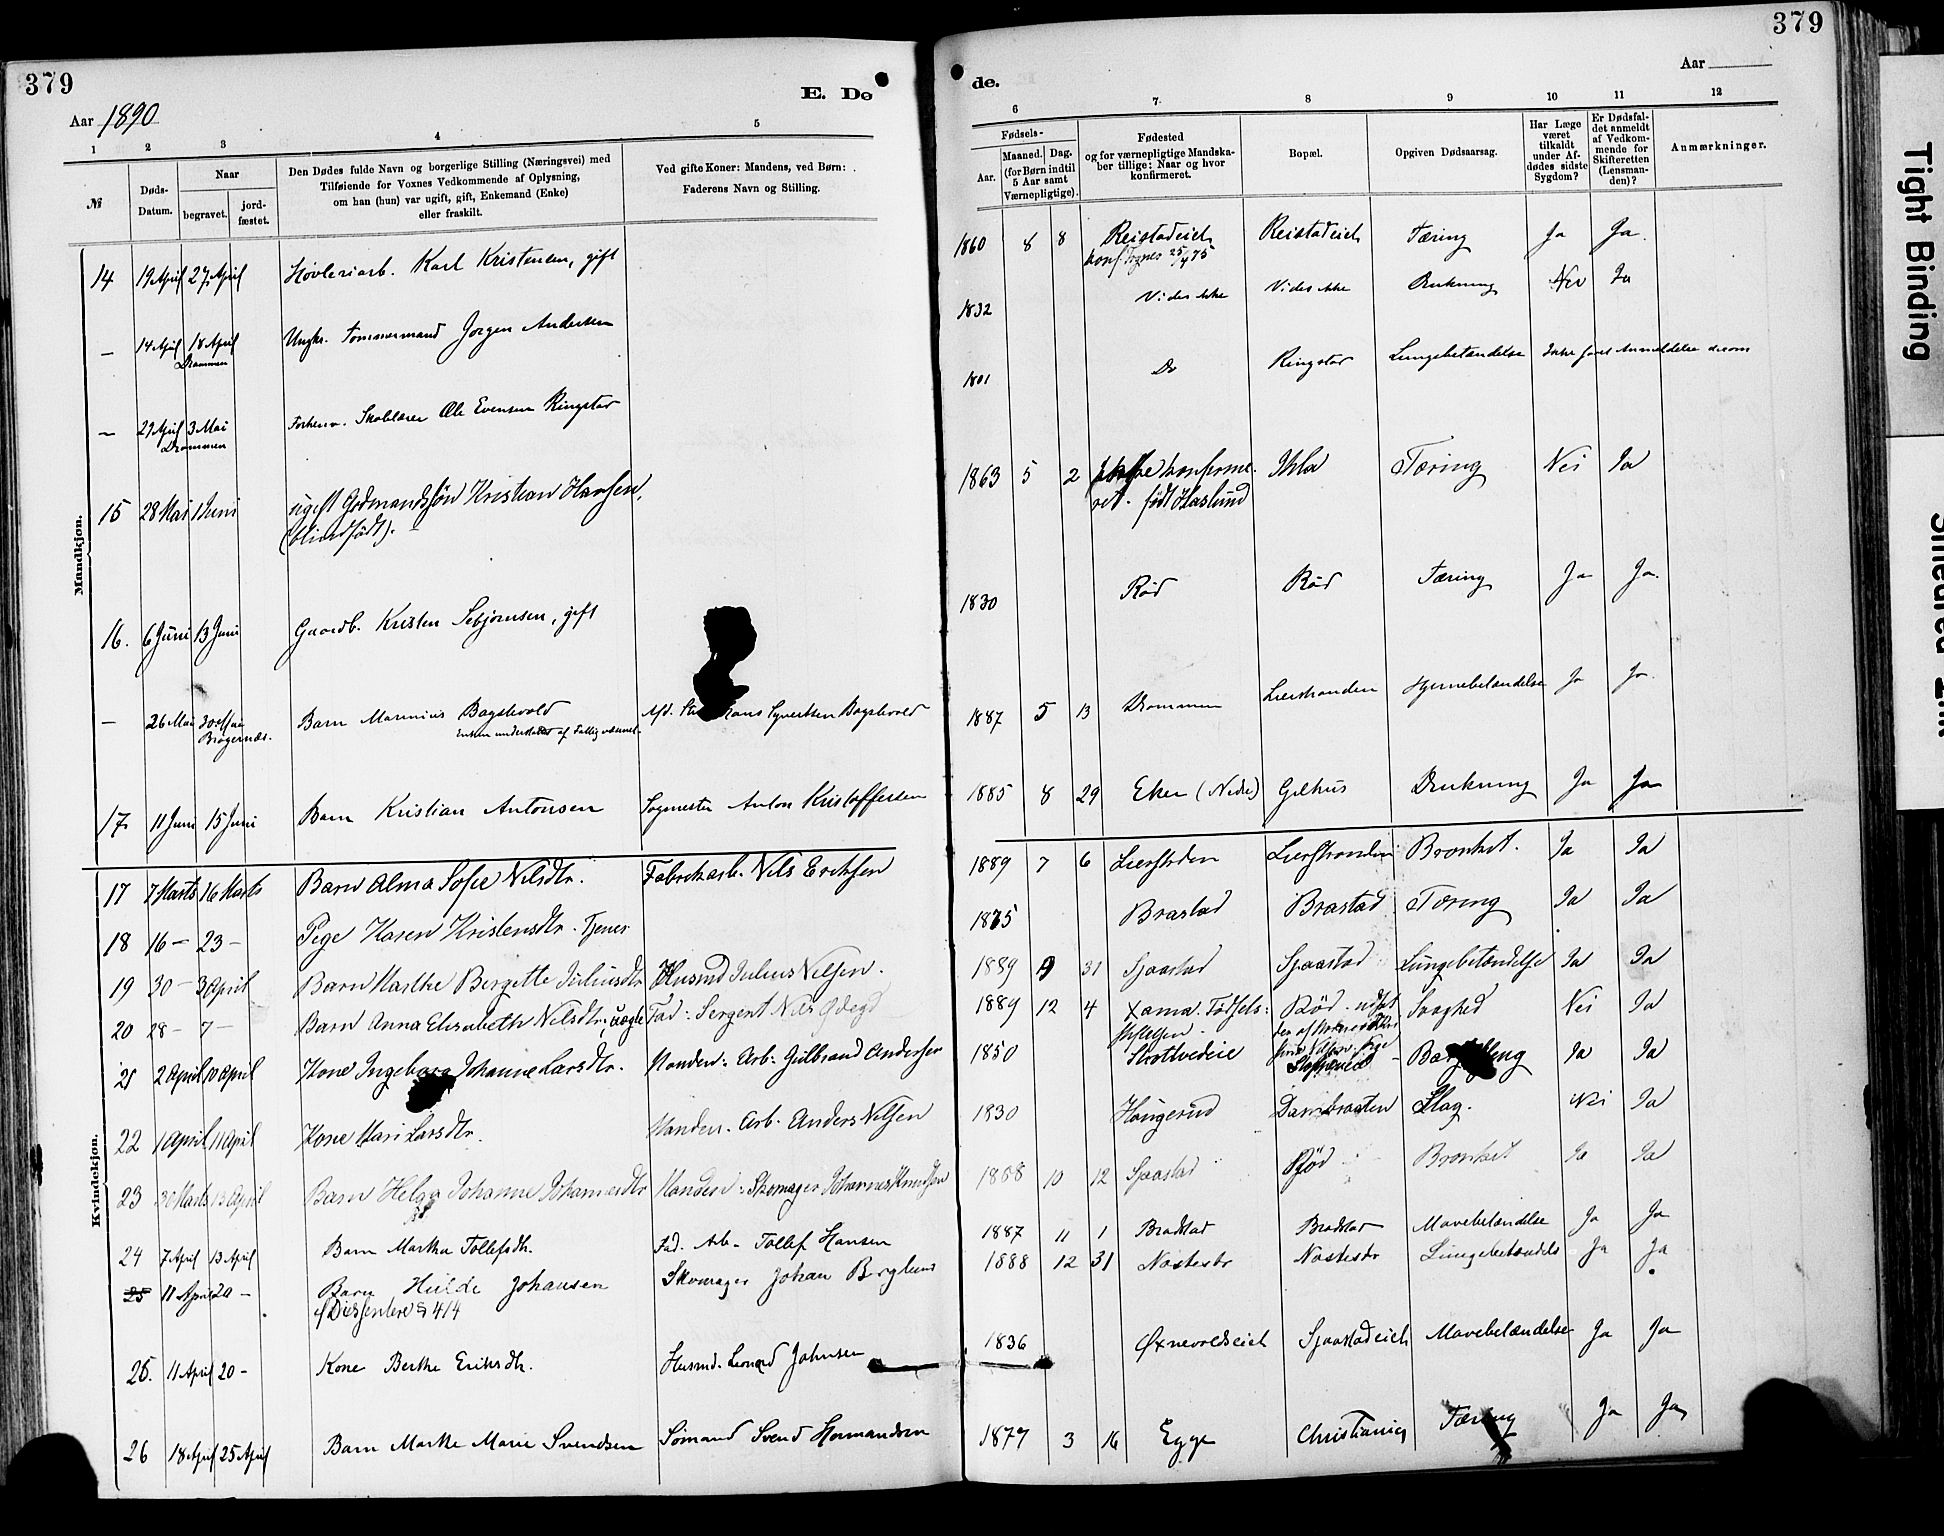 379
Aar 1890
E. Dø
1 2 3 4 5
№
Døds-Datum.
Naar
begravet.
jord-fæstet.
Den Dødes fulde Navn og borgerlige Stilling (Næringsvei) med
Tilføiende for Voxnes Vedkommende af Oplysning,
om han (hun) var ugift, gift, Enkemand (Enke)
eller fraskilt.
Ved gifte Koner: Mandens, ved Børn:
Faderens Navn og Stilling.
Mandkjøn.
14 19 April 27 April Høvleriarb. Karl Kristensen, gift
— 14 April 18 April Ungkr. Tømmermand Jørgen Andersen
Drammen
— 29 April 3 Mai Forhenv. Skolelærer Ole Evensen Ringstad
Drammen
15 28 Mai 1 Juni ugift Gdmandssøn Kristian Hansen,
(blindfødt).
16. 6 Juni 13 Juni Gaardb. Kristen Sebjørnsen, gift
— 26 Mai 30 Mai Barn Marinius Bagstevold Afd. Syvertsen Bagstevold
Bragernæs. Enken understøttet af Fattigvæsenet
17. 11 Juni 15 Juni Barn Kristian Antonsen Sagmester Anton Kristoffersen
Kvindekjøn.
17 7 Marts 16 Marts Barn Alma Sofie Nilsdtr. Fabrikarb. Nils Eriksen
18 16 — 23 — Pige Karen Kristensdtr. Tjener
19 30 — 3 April Barn Marthe Bergitte Juliusdtr Husmd Julius Nilsen.
20 28 — 7 — Barn Anna Elisabeth Nilsdtr, uægte Fad: Sergent Nils
21 2 April 10 April Kone Ingeborg Johanne Larsdtr. Manden: Arb: Gulbrand Andersen
22 1 April 11 April Kone Mari Larsdtr. Manden. Arb. Anders Nilsen
23 30 Marts 13 April Barn Helga Johanne Johannesdtr Manden: Skomager Johannes Knudsen
24 7 April 13 April Barn Marthe Tollefsdtr. Fad. Arb. Tollef Hansen
25 11 April 20 — Barn Hulde Johansen Skomager Johan Berglund
cf Dissentere S 414
25. 11 April 20 — Kone Berthe Eriksdtr. Husmd. Leonard Johnsen
26 18 April 25 April Barn Marthe Marie Svendsen Sømand Svend Hermandsen
379
Aar
de.
6 7 8 9 10 11 12
Fødsels-
Aar.
Maaned. Dag.
(for Børn indtil
5 Aar samt
Værnepligtige).
Fødested
og for værnepligtige Mandska-
ber tillige: Naar og hvor
konfirmeret.
Bopæl.
Opgiven Dødsaarsag.
Har Læge
været
tilkaldt
under Af-
dødes sidste
Sygdom?
Er Dødsfal-
det anmeldt
af Vedkom-
mende for
Skifteretten
(Lensman-
den)?
Anmærkninger.
1860 8 8 Reistadeieh Reistadeieh Tæring Ja Ja.
konf. 25/4 75
1832 Vides ikke Vides ikke Drukning Nei Ja
1801 Do Ringstad Lungebetændelse Ikke faaet Anmeldelse derom
1863 5 2 ikke konfirme- Tæring Nei Ja
ret. født Haslund
1830 Rød Rød Tæring Ja Ja.
1887 5 13 Drammen Lierstranden Hjernebetændelse Ja Ja.
1885 8 29 Eker (Nedre) Gilhus Drukning Ja Ja
1889 7 6 Lierstrden Lierstranden Bronkit. Ja Ja
1875 Brastad Brastad Tæring Ja Ja
1889 9 31 Sjaastad Sjaastad Lungebetændelse Ja Ja
1889 12 4 Xania. Fødsels: Rød. Svaghed Nei Ja
Stiftelsen.
1850 Ja Ja
1830 Haugerud Dambraaten Slag. Nei Ja
1888 10 12 Sjaastad Rød Bronkit Ja Ja
1887 11 1 Bradstad Bradstad Mavebetændelse Ja Ja
1888 12 31 Nøstestr Nøstestr Lungebetændels Ja Ja
1836 Øxnevoldseieh Sjaastadeieh Mavebetændelse Ja Ja
1877 3 16 Egge Christiania Tæring Ja Ja
Tight Binding